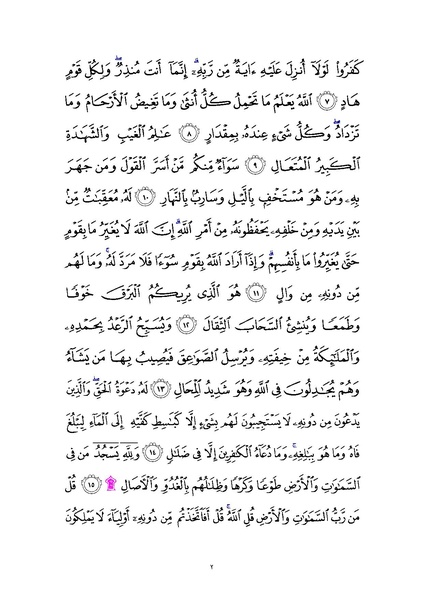 كَفَرُوا۟ لَوْلَآ أُنزِلَ عَلَيْهِ ءَايَةٌ مِّن رَّبِّهِۦٓ ۗ إِنَّمَآ أَنتَ مُنذِرٌ ۖ وَلِكُلِّ قَوْمٍ
هَادٍ ٧ ٱللَّهُ يَعْلَمُ مَا تَحْمِلُ كُلُّ أُنثَىٰ وَمَا تَغِيضُ ٱلْأَرْحَامُ وَمَا
تَزْدَادُ ۖ وَكُلُّ شَىْءٍ عِندَهُۥ بِمِقْدَارٍ ٨ عَـٰلِمُ ٱلْغَيْبِ وَٱلشَّهَـٰدَةِ
ٱلْكَبِيرُ ٱلْمُتَعَالِ ٩ سَوَآءٌ مِّنكُم مَّنْ أَسَرَّ ٱلْقَوْلَ وَمَن جَهَرَ
بِهِۦ وَمَنْ هُوَ مُسْتَخْفٍۭ بِٱلَّيْلِ وَسَارِبٌۢ بِٱلنَّهَارِ ١٠ لَهُۥ مُعَقِّبَـٰتٌ مِّنۢ
بَيْنِ يَدَيْهِ وَمِنْ خَلْفِهِۦ يَحْفَظُونَهُۥ مِنْ أَمْرِ ٱللَّهِ ۗ إِنَّ ٱللَّهَ لَا يُغَيِّرُ مَا بِقَوْمٍ
حَتَّىٰ يُغَيِّرُوا۟ مَا بِأَنفُسِهِمْ ۗ وَإِذَآ أَرَادَ ٱللَّهُ بِقَوْمٍ سُوٓءًا فَلَا مَرَدَّ لَهُۥ ۚ وَمَا لَهُم
مِّن دُونِهِۦ مِن وَالٍ ١١ هُوَ ٱلَّذِى يُرِيكُمُ ٱلْبَرْقَ خَوْفًا
وَطَمَعًا وَيُنشِئُ ٱلسَّحَابَ ٱلثِّقَالَ ١٢ وَيُسَبِّحُ ٱلرَّعْدُ بِحَمْدِهِۦ
وَٱلْمَلَـٰٓئِكَةُ مِنْ خِيفَتِهِۦ وَيُرْسِلُ ٱلصَّوَٰعِقَ فَيُصِيبُ بِهَا مَن يَشَآءُ
وَهُمْ يُجَـٰدِلُونَ فِى ٱللَّهِ وَهُوَ شَدِيدُ ٱلْمِحَالِ ١٣ لَهُۥ دَعْوَةُ ٱلْحَقِّ ۖ وَٱلَّذِينَ
يَدْعُونَ مِن دُونِهِۦ لَا يَسْتَجِيبُونَ لَهُم بِشَىْءٍ إِلَّا كَبَـٰسِطِ كَفَّيْهِ إِلَى ٱلْمَآءِ لِيَبْلُغَ
فَاهُ وَمَا هُوَ بِبَـٰلِغِهِۦ ۚ وَمَا دُعَآءُ ٱلْكَـٰفِرِينَ إِلَّا فِى ضَلَـٰلٍ ١٤ وَلِلَّهِ يَسْجُدُ مَن فِى
ٱلسَّمَـٰوَٰتِ وَٱلْأَرْضِ طَوْعًا وَكَرْهًا وَظِلَـٰلُهُم بِٱلْغُدُوِّ وَٱلْـَٔاصَالِ ۩ ١٥ قُلْ
مَن رَّبُّ ٱلسَّمَـٰوَٰتِ وَٱلْأَرْضِ قُلِ ٱللَّهُ ۚ قُلْ أَفَٱتَّخَذْتُم مِّن دُونِهِۦٓ أَوْلِيَآءَ لَا يَمْلِكُونَ
٢